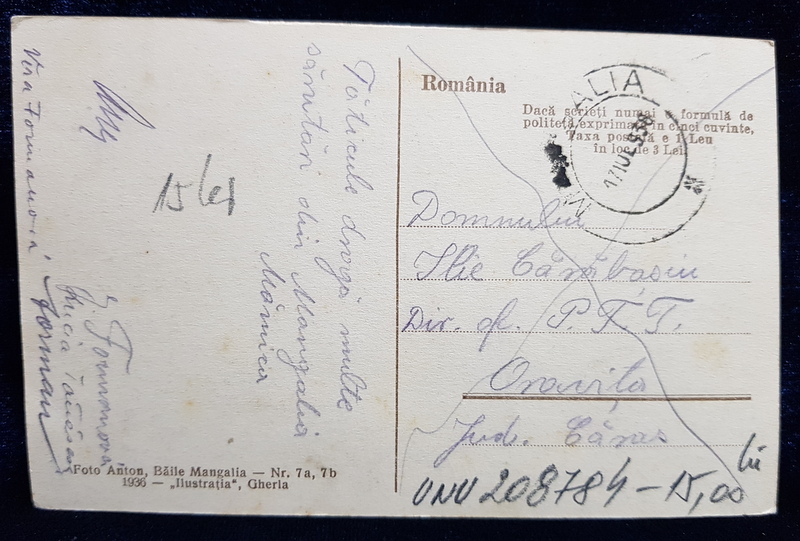 România
Dacă scrieți numai o formulă de
politeță exprimată în cinci cuvinte,
Taxa poștală e 1 Leu
în loc de 3 Lei.
17 IUL 938
Domnului
Ilie Cărăbașiu
Dir. of. P.T.T.
Oravița
Jud. Caraș
Tăticule dragă multe
sărutări din Mangalia
Mămica
15 lei
Lucia
Forman
Foto Anton, Băile Mangalia — Nr. 7a, 7b
1936 — „Ilustrația", Gherla
UNU 208784 — 15,00